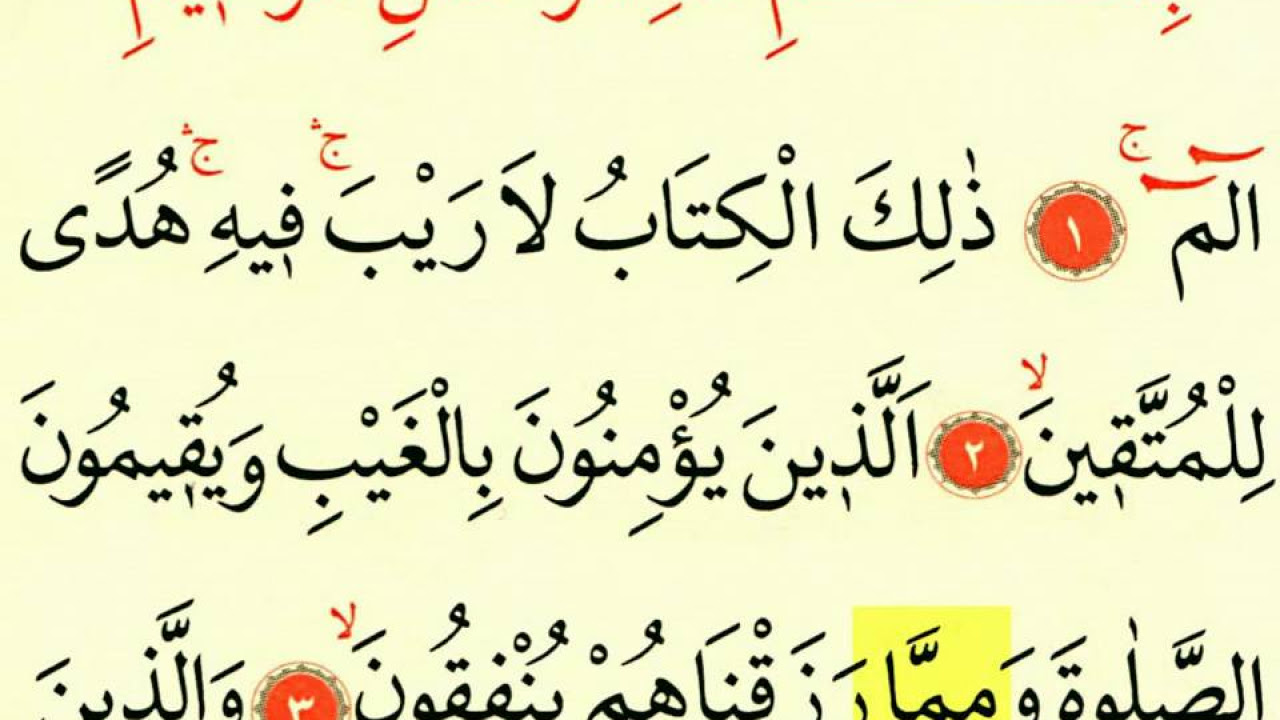 الٓمٓ ۚ ﴿١﴾ ذٰلِكَ الْكِتَابُ لَا رَيْبَ ۛ فِيهِ ۛ هُدًى
لِلْمُتَّقِينَ ۙ ﴿٢﴾ اَلَّذِينَ يُؤْمِنُونَ بِالْغَيْبِ وَيُقِيمُونَ
الصَّلٰوةَ وَمِمَّا رَزَقْنَاهُمْ يُنْفِقُونَ ۙ ﴿٣﴾ وَالَّذِينَ